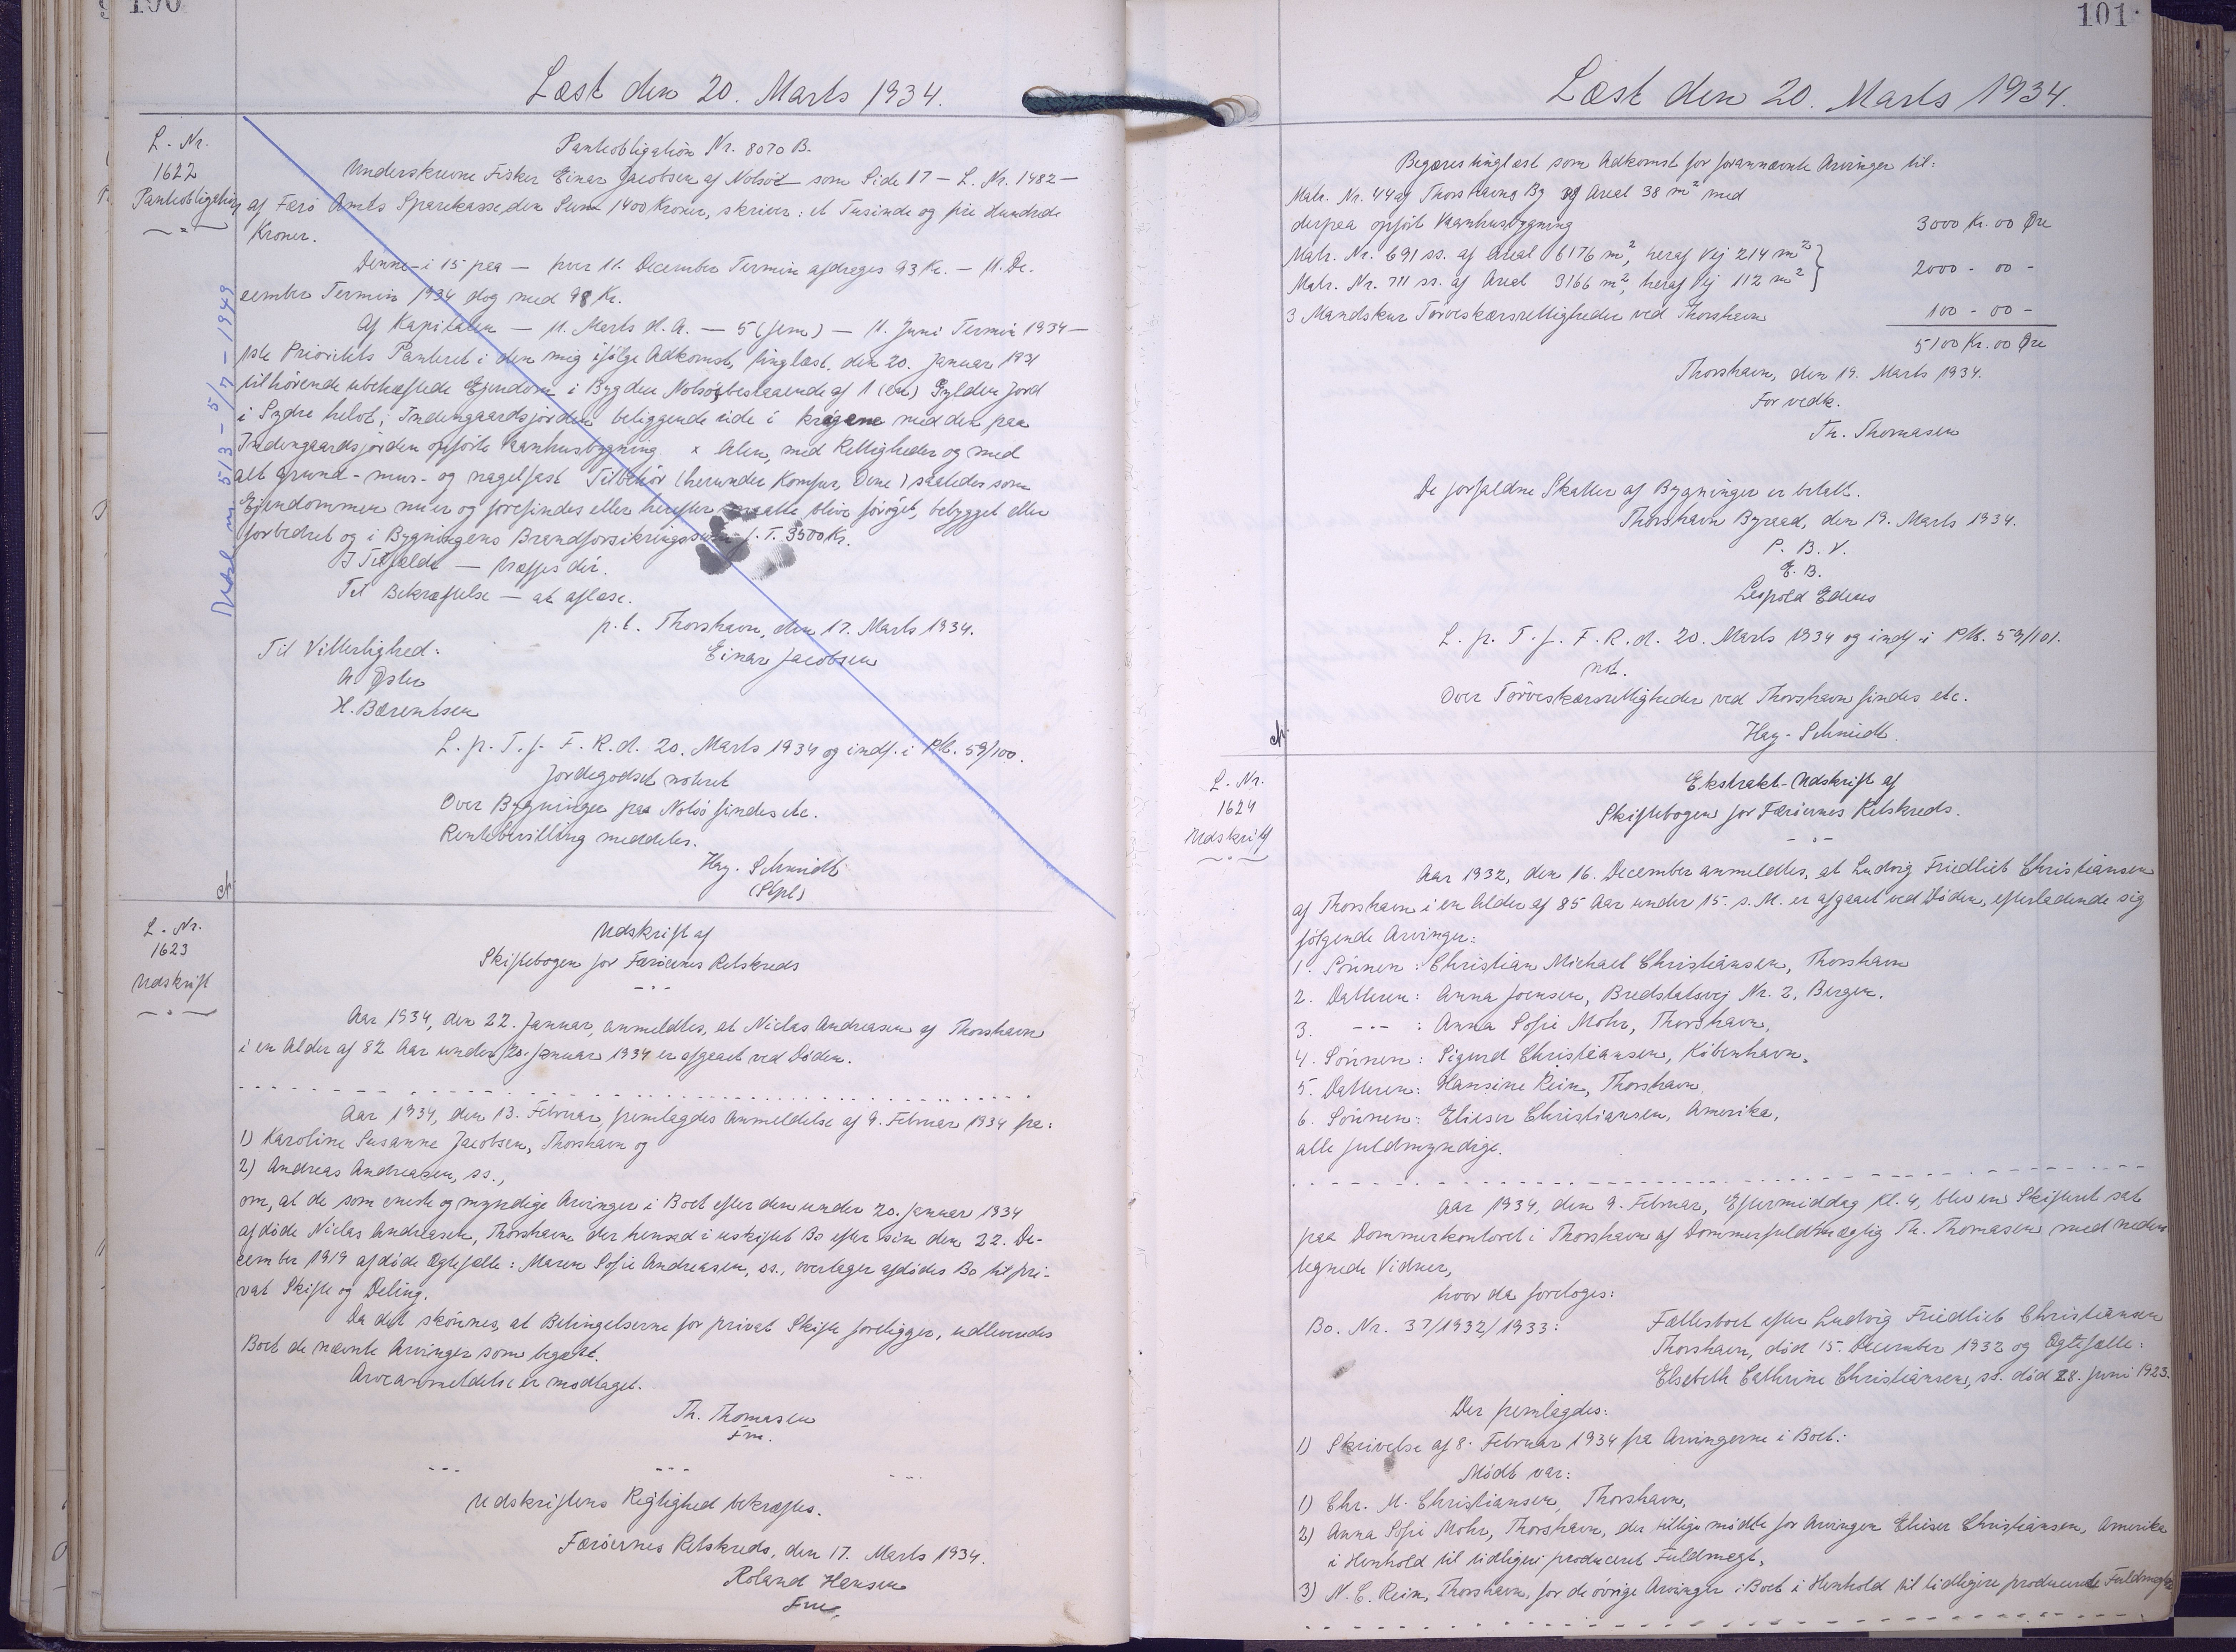 100
Læst den 20. Marts 1934.
L. Nr.
1622
Panteobligation
Panteobligation Nr. 8070 B.
Underskrevne Fisker Einar Jacobsen af Nolsö - som Side 17 - L. Nr. 1482 -
af Færö Amts Sparekasse, den Sum 1400 Kroner, skriver: et Tusinde og fire Hundrede
Kroner.
Denne - i 15 paa - hver 11. December Termin afdrages 93 Kr. - 11. De-
cember Termin 1934 dog med 98 Kr.
Af Kapitalen - 11. Marts d. A. - 5 (fem) - 11. Juni Termin 1934 -
1ste Prioritets Panteret i den mig ifölge Adkomst, tinglæst den 20. Januar 1931
tilhörende ubehæftede Ejendom i Bygden Nolsö, bestaaende af 1 (en) Gylden Jord
i Sydre helvt; Indengaardsjorden beliggende ude i krógene med den paa
Indengaardsjorden opförte Vaanhusbygning x Alen, med Rettigheder og med
alt grund- mur- og nagelfast Tilbehör (herunder Komfur, Ovne) saaledes som
Ejendommen nu er og forefindes eller herefter maatte blive foröget, bebygget eller
forbedret og i Bygningens Brandforsikringssum p. T. 3500 Kr.
I Tilfælde - Næppes dér.
Til Bekræftelse - at aflæse.
p.t. Thorshavn, den 17. Marts 1934.
Einar Jacobsen
Til Vitterlighed:
A. Öster
H. Bærentsen
L. p. T. f. F. R. d. 20. Marts 1934 og indf. i Ptb. 59/100.
Jordegodset noteret
Over Bygninger paa Nolsö findes etc.
Rentebevilling meddeles.
Hay-Schmidt
(Stpl)
5/3 - 5/7 - 1949
L. Nr.
1623
Udskrift
Udskrift af
Skiftebogen for Færöernes Retskreds
Aar 1934, den 22. Januar, anmeldtes, at Niclas Andreasen af Thorshavn
i en Alder af 82 Aar under 20. Januar 1934 er afgaaet ved Döden.
Aar 1934, den 13. Februar, fremlagdes Anmeldelse af 9. Februar 1934 fra:
1) Karoline Susanne Jacobsen, Thorshavn og
2) Andreas Andreasen, ss.,
om, at de som eneste og myndige Arvinger i Boet efter den under 20. Januar 1934
afdöde Niclas Andreasen, Thorshavn der hensad i uskiftet Bo efter sin den 22. De-
cember 1919 afdöde Ægtefælle: Maren Sofie Andreasen, ss., overtager afdödes Bo til pri-
vat Skifte og Deling.
Da det skönnes, at Betingelserne for privat Skifte foreligger, udleveredes
Boet de nævnte Arvinger som begært.
Arveanmeldelse er modtaget.
Th. Thomasen
Fm.
Udskriftens Rigtighed bekræftes.
Færöernes Retskreds, den 17. Marts 1934.
Roland Hansen
Fm.
101
Læst den 20. Marts 1934.
Begæres tinglæst som Adkomst for forannævnte Arvinger til:
Matr. Nr. 44 af Thorshavns By af Areal 38 m² med
derpaa opfört Vaanhusbygning 3000 Kr. 00 Øre
Matr. Nr. 691 ss. af Areal 6176 m², heraf Vej 214 m²
Matr. Nr. 711 ss. af Areal 3166 m², heraf Vej 112 m² } 2000 - 00 -
3 Mandskur Törveskærsrettigheder ved Thorshavn 100 - 00 -
5100 Kr. 00 Øre
Thorshavn, den 19. Marts 1934.
For vedk.
Th. Thomasen
De forfaldne Skatter af Bygninger er betalt.
Thorshavn Byraad, den 19. Marts 1934.
P. B. V.
E. B.
Leopold Edens
L. p. T. f. F. R. d. 20. Marts 1934 og indf. i Ptb. 59/101.
not.
Over Törveskærsrettigheder ved Thorshavn findes etc.
Hay-Schmidt.
L. Nr.
1624
Udskrift
Ekstrakt-Udskrift af
Skiftebogen for Færöernes Retskreds.
Aar 1932, den 16. December anmeldtes, at Ludvig Friedlieb Christiansen
af Thorshavn i en Alder af 85 Aar under 15. s. M. er afgaaet ved Döden, efterladende sig
fölgende Arvinger:
1. Sönnen: Christian Michael Christiansen, Thorshavn
2. Datteren: Anna Joensen, Bredstatsvej Nr. 2, Bergen.
3. --- : Anna Sofie Mohr, Thorshavn,
4. Sönnen: Sigurd Christiansen, Köbenhavn,
5. Datteren: Hansine Rein, Thorshavn
6. Sönnen: Elieser Christiansen, Amerika,
alle fuldmyndige.
Aar 1934, den 9. Februar, Eftermiddag Kl. 4, blev en Skifteret sat
paa Dommerkontoret i Thorshavn af Dommerfuldmægtig Th. Thomasen med neden-
tegnede Vidner,
hvor da foretoges:
Bo. Nr. 37/1932/1933: Fællesboet efter Ludvig Friedlieb Christiansen
Thorshavn, död 15. December 1932 og Ægtefælle:
Elsebeth Cathrine Christiansen, ss. död 28. Juni 1923.
Der fremlagdes:
1) Skrivelse af 8. Februar 1934 fra Arvingerne i Boet:
Mödt var:
1) Chr. M. Christiansen, Thorshavn,
2) Anna Sofie Mohr, Thorshavn, der tillige mödte for Arvingen Elieser Christiansen, Amerika
i Henhold til tidligere produceret Fuldmagt,
3) N. C. Rein, Thorshavn, for de övrige Arvinger i Boet i Henhold til tidligere producerede Fuldmagter